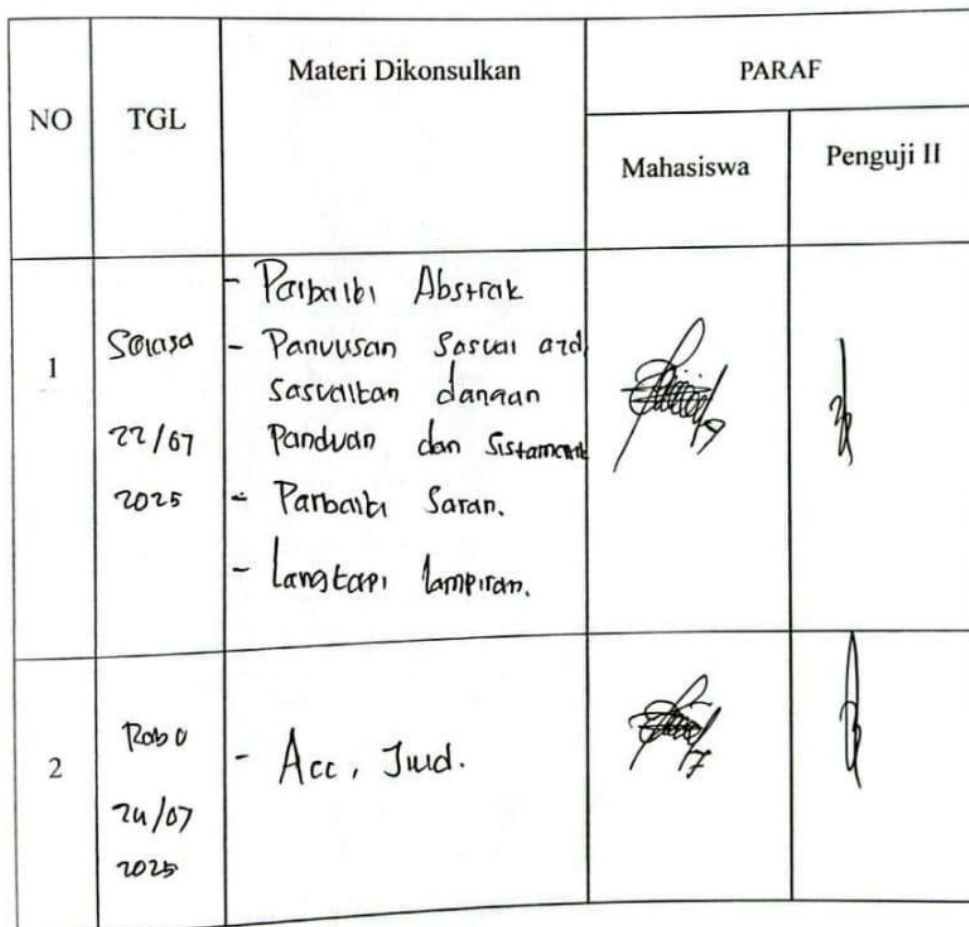 NO
TGL
Materi Dikonsulkan
PARAF
Mahasiswa
Penguji II
1
Selasa
22/07
2025
- Perbaiki Abstrak
- Penulisan Sesuai
sesuaikan dengan
Panduan dan Sistematik
- Perbaiki Saran.
- Lengkapi lampiran.
2
Rabu
24/07
2025
- Acc, Jilid.